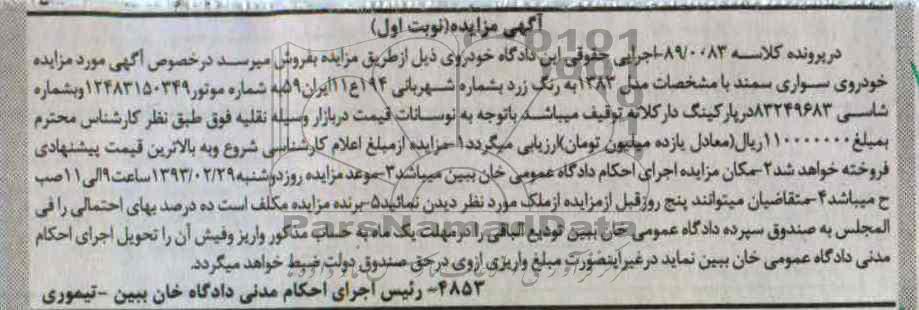 آگهی مزایده(نوبت اول)
درپرونده کلاسه ۸۹/۰۰۸۳-اجرایی حقوقی این دادگاه خودروی ذیل ازطریق مزایده بفروش میرسد درخصوص آگهی مورد مزایده
خودروی سواری سمند با مشخصات مدل ۱۳۸۳به رنگ زرد بشماره شهربانی ۱۹۴ع۱۱ایران۵۹به شماره موتور۱۲۴۸۳۱۵۰۳۴۹وبشماره
شاسی ۸۳۲۴۹۶۸۳درپارکینگ دارکلاته توقیف میباشد باتوجه به نوسانات قیمت دربازار وسیله نقلیه فوق طبق نظر کارشناس محترم
بمبلغ۱۱۰۰۰۰۰۰۰ریال(معادل یازده میلیون تومان)ارزیابی میگردد۱-مزایده ازمبلغ اعلام کارشناسی شروع وبه بالاترین قیمت پیشنهادی
فروخته خواهد شد۲-مکان مزایده اجرای احکام دادگاه عمومی خان ببین میباشد۳-موعد مزایده روزدوشنبه۱۳۹۳/۰۲/۲۹ساعت۹الی۱۱صب
ح میباشد۴-متقاضیان میتوانند پنج روزقبل ازمزایده ازملک مورد نظر دیدن نمائید۵-برنده مزایده مکلف است ده درصد بهای احتمالی را فی
المجلس به صندوق سپرده دادگاه عمومی خان ببین تودیع الباقی را درمهلت یک ماه به حساب مذکور واریز وفیش آن را تحویل اجرای احکام
مدنی دادگاه عمومی خان ببین نماید درغیراینصورت مبلغ واریزی ازوی درحق صندوق دولت ضبط خواهد میگردد.
۴۸۵۳- رئیس اجرای احکام مدنی دادگاه خان ببین -تیموری
ParsNamadData